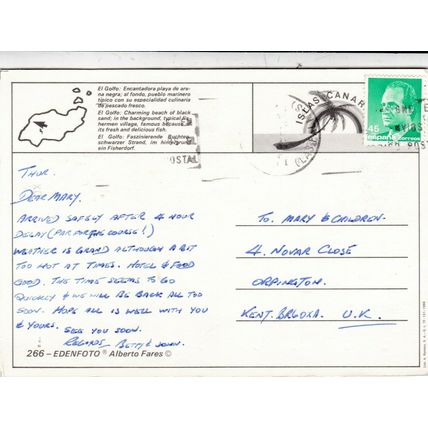 El Golfo: Encantadora playa de are-
na negra; al fondo, pueblo marinero
típico con su especialidad culinaria
de pescado fresco.
El Golfo: Charming beach of black
sand; in the background, typical fis-
hermen village, famous because
its fresh and delicious fish.
El Golfo: Faszinierende
schwarzer Strand, im
ein Fisherdorf.
POSTAL
ISLAS CANAR
45
españa
correos
THUR.
DEAR MARY.
ARRIVED SAFELY AFTER 4 HOUR
DELAY (PAR FOR THE COURSE!)
WEATHER IS GRAND ALTHOUGH A BIT
TOO HOT AT TIMES. HOTEL & FOOD
GOOD. THE TIME SEEMS TO GO
QUICKLY & WE WILL BE BACK ALL TOO
SOON. HOPE ALL IS WELL WITH YOU
& YOURS. SEE YOU SOON.
REGARDS, BETTY & JOHN.
TO. MARY & CHILDREN.
4. NOVAR CLOSE
ORPINGTON.
KENT. U.K.
266 – EDENFOTO ® Alberto Fares ©